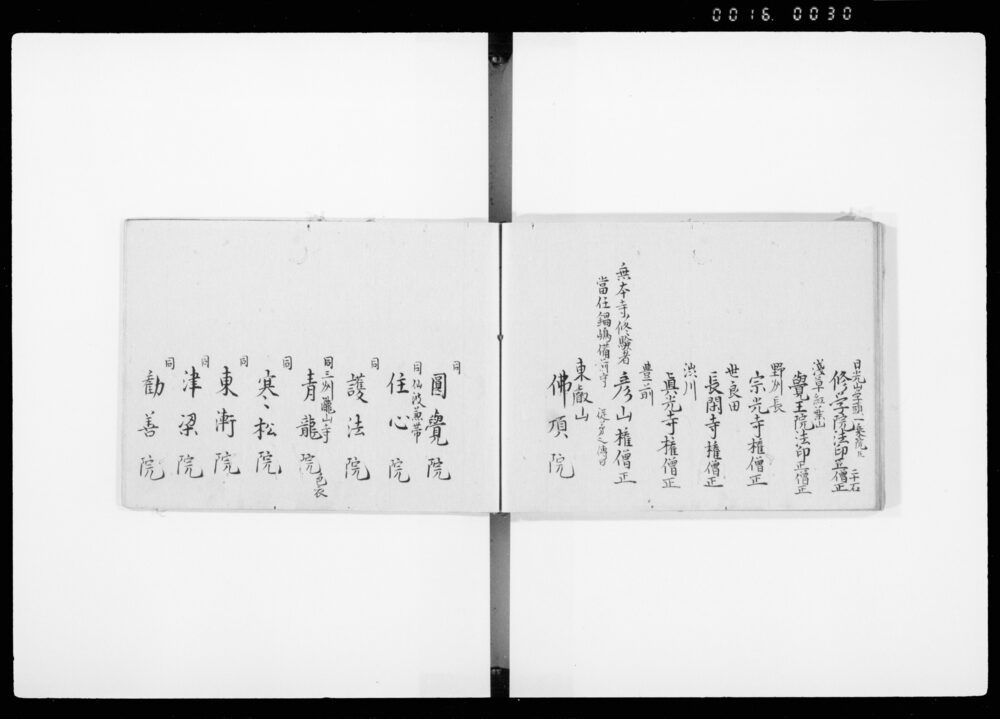 0016 0030
日光山学頭一乗院
二千石
修学院法印正僧正
浅草紅葉山
覺王院法印正僧正
野州長
宗光寺権僧正
世良田
長閑寺権僧正
渋川
眞光寺権僧正
豊前
彦山権僧正
無本寺修験者
當住鍋嶋備前守
東叡山
佛頂院
同
圓覺院
同仙波兼帯
住心院
同
護法院
同三州瀧山寺
青龍院
色衣
同
寒松院
同
東漸院
同
津梁院
同
勧善院